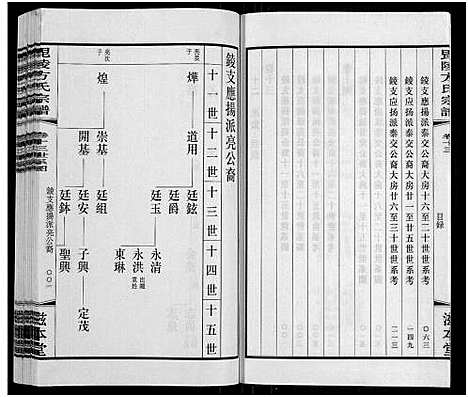 毘陵方氏宗譜
卷十三
目録
錂支應揚派泰交公裔大房十六至二十世世系考
〇六三
錂支应扬派秦交公裔大房廿一至廿五世世系考
一四九
錂支应扬派泰交公裔大房廿六至三十世世系考
二一三
滋本堂
毘陵方氏宗譜
卷十三世系圖
錂支應揚派亮公裔
〇〇一
滋本堂
錂支應揚派亮公裔
十一世 十二世 十三世 十四世 十五世
亮長子 燁 道用 廷鉉
廷爵
廷玉 永清
永洪 出繼
東琳
亮次子 煌 崇基 廷組
開基 廷安 子興 定茂
廷鉢 聖興